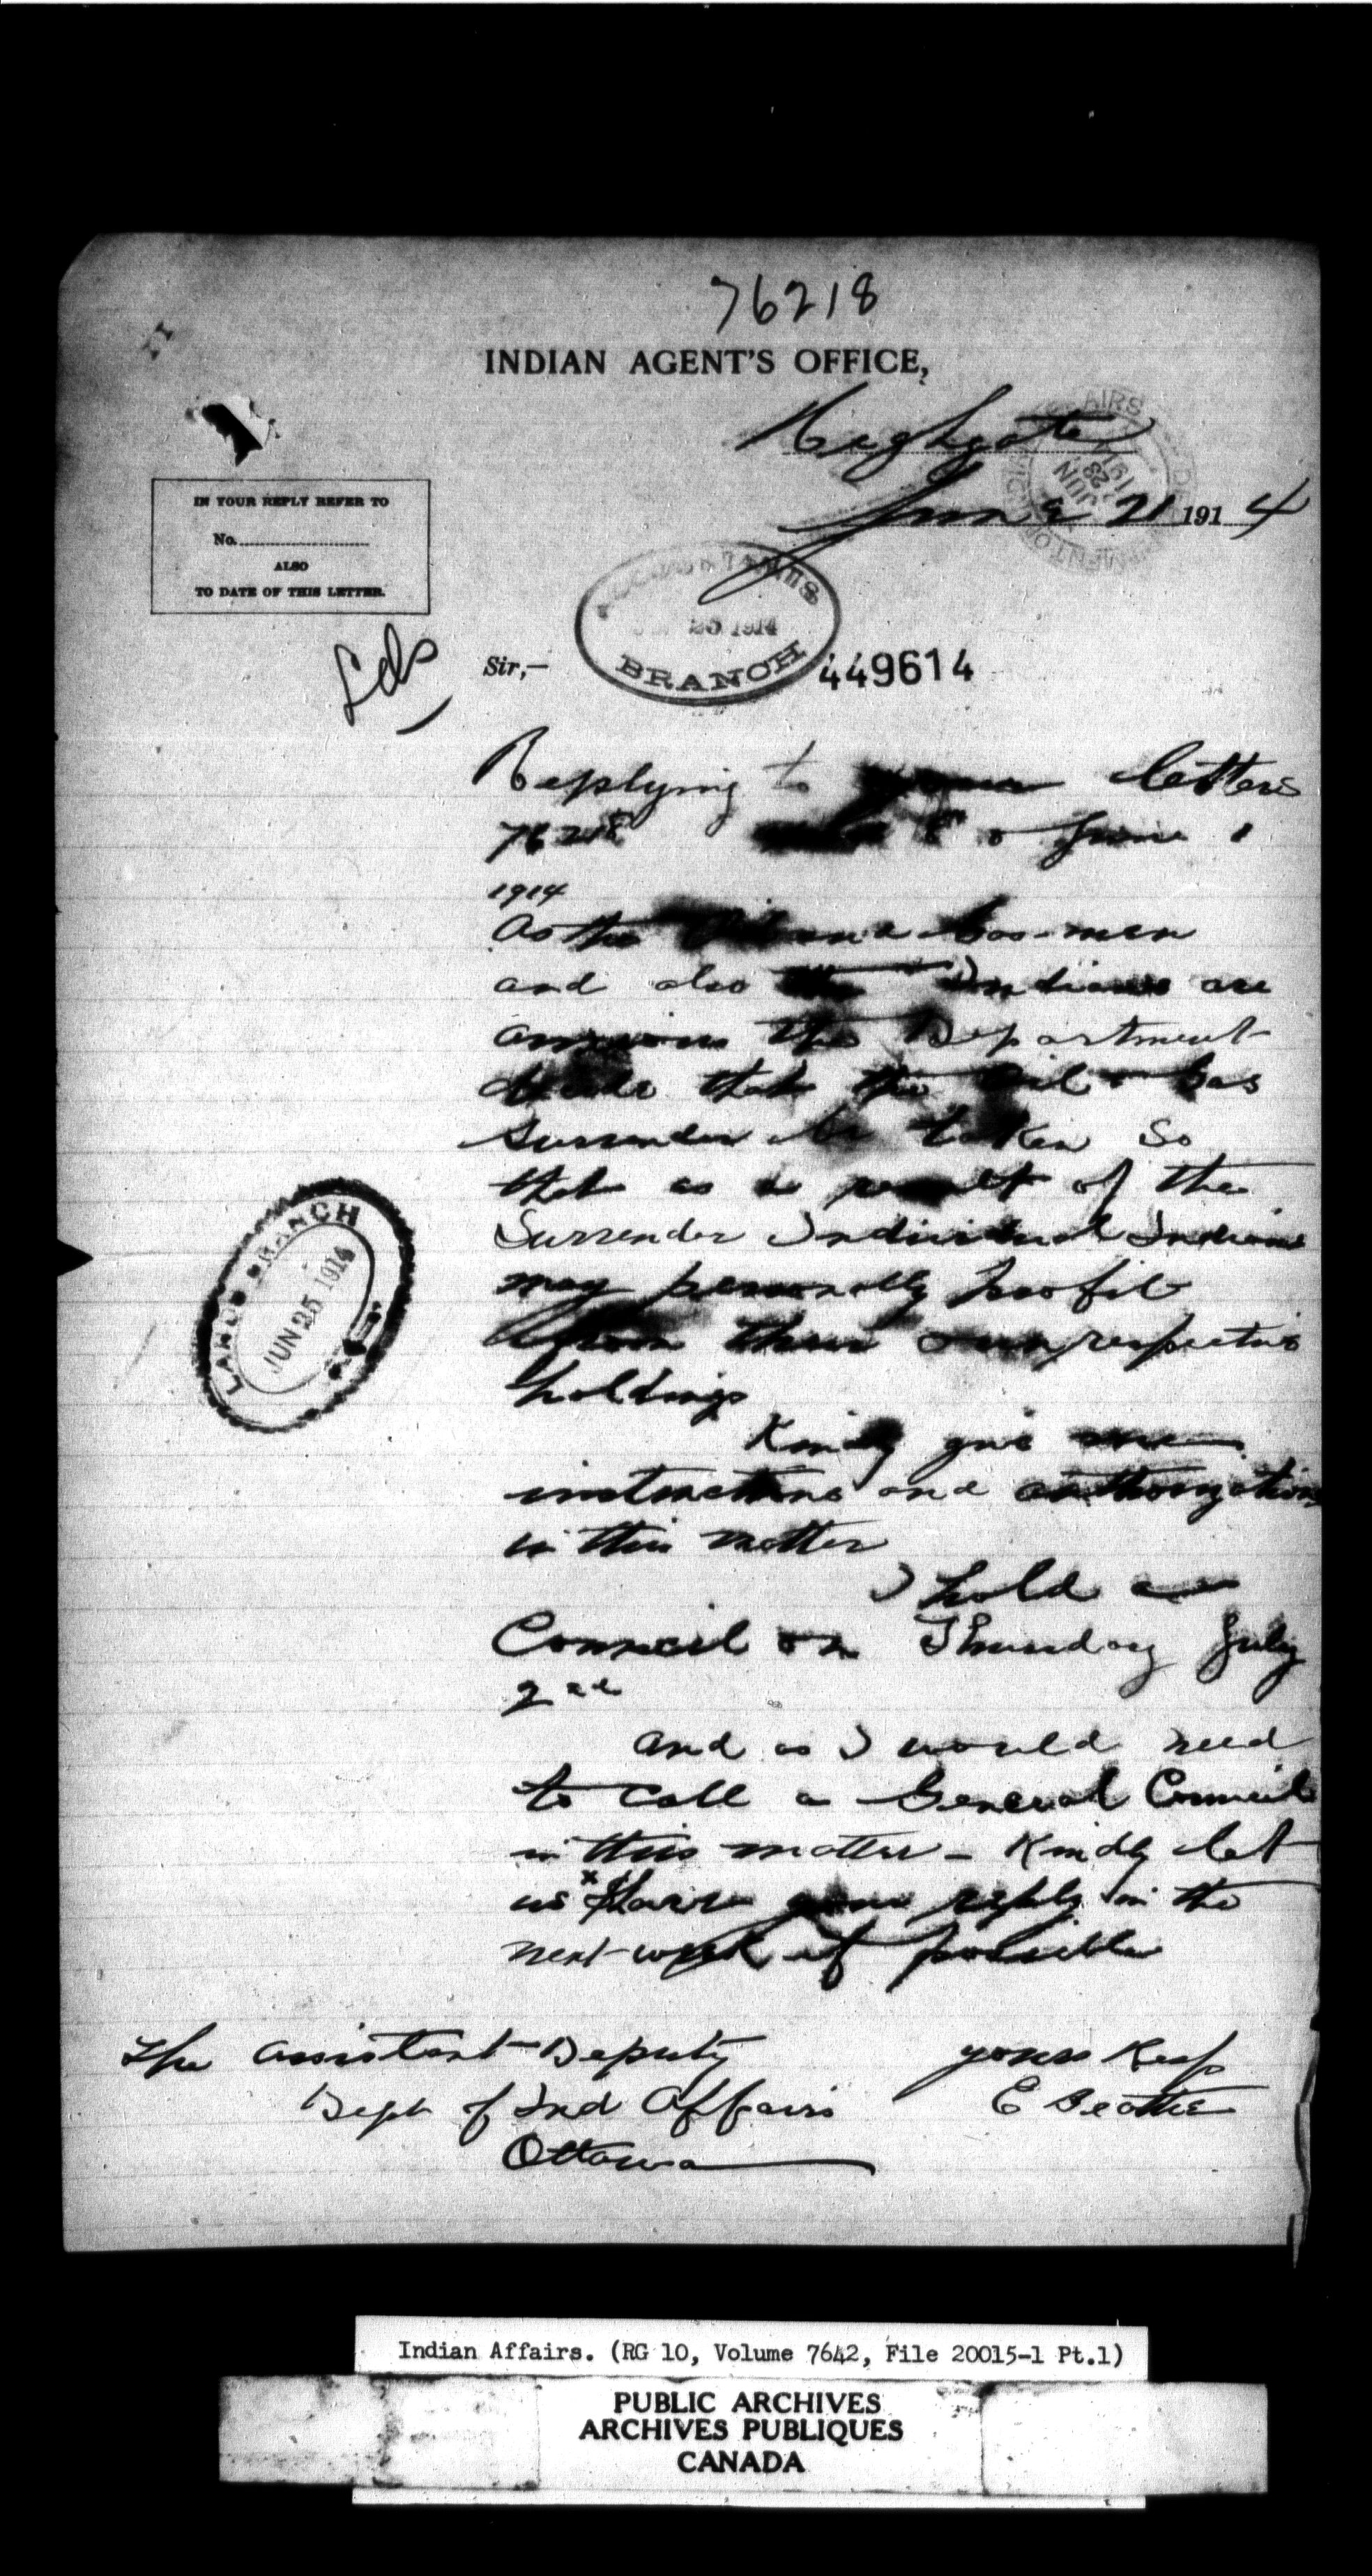 76218
INDIAN AGENT'S OFFICE,
Highgate
June 21 1914
IN YOUR REPLY REFER TO
No.
ALSO
TO DATE OF THIS LETTER.
JUN 23 191
20 1914
BRANCH
Sir,—
449614
Replying to your letters
76218 8th & June 1
1914
As the Gas men
and also the Indians are
anxious the Department
decide that the Oil & Gas
Surrender be taken so
that as a result of the
Surrender Individual Indians
may personally profit
from their own respective
holdings
Kindly give me
instructions and authorization
in this matter
I hold a
Council on Thursday July
2nd
and as I would need
to call a General Council
in this matter - Kindly let
us x have your reply in the
next week if possible
LANDS BRANCH
JUN 25 1914
The Assistant Deputy
Dept of Ind Affairs
Ottawa
yours Resp
E Beattie
Indian Affairs. (RG 10, Volume 7642, File 20015-1 Pt.1)
PUBLIC ARCHIVES
ARCHIVES PUBLIQUES
CANADA